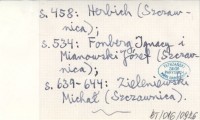 s. 458: Herbich (Szczaw-
nica);
s. 534: Fonberg Ignacy i
Mianowski Józef (Szczaw-
nica);
s. 639-644: Zieleniewski
Michał (Szczawnica).